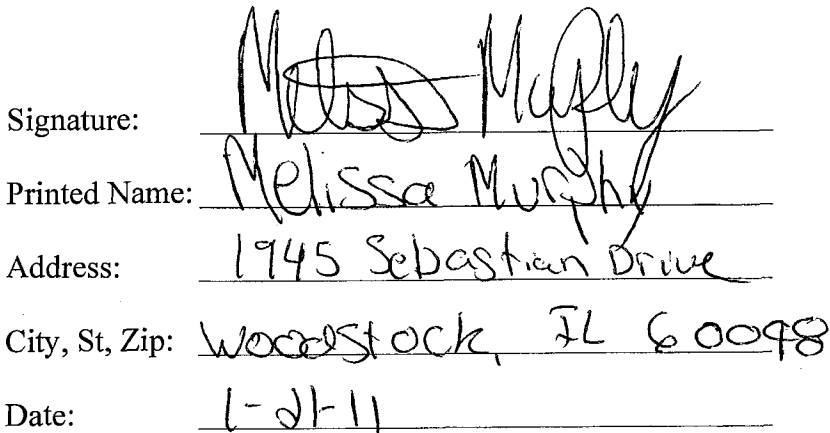 Signature: Melissa Murphy
Printed Name: Melissa Murphy
Address: 1945 Sebastian Drive
City, St, Zip: Woodstock, IL 60098
Date: 1-21-11